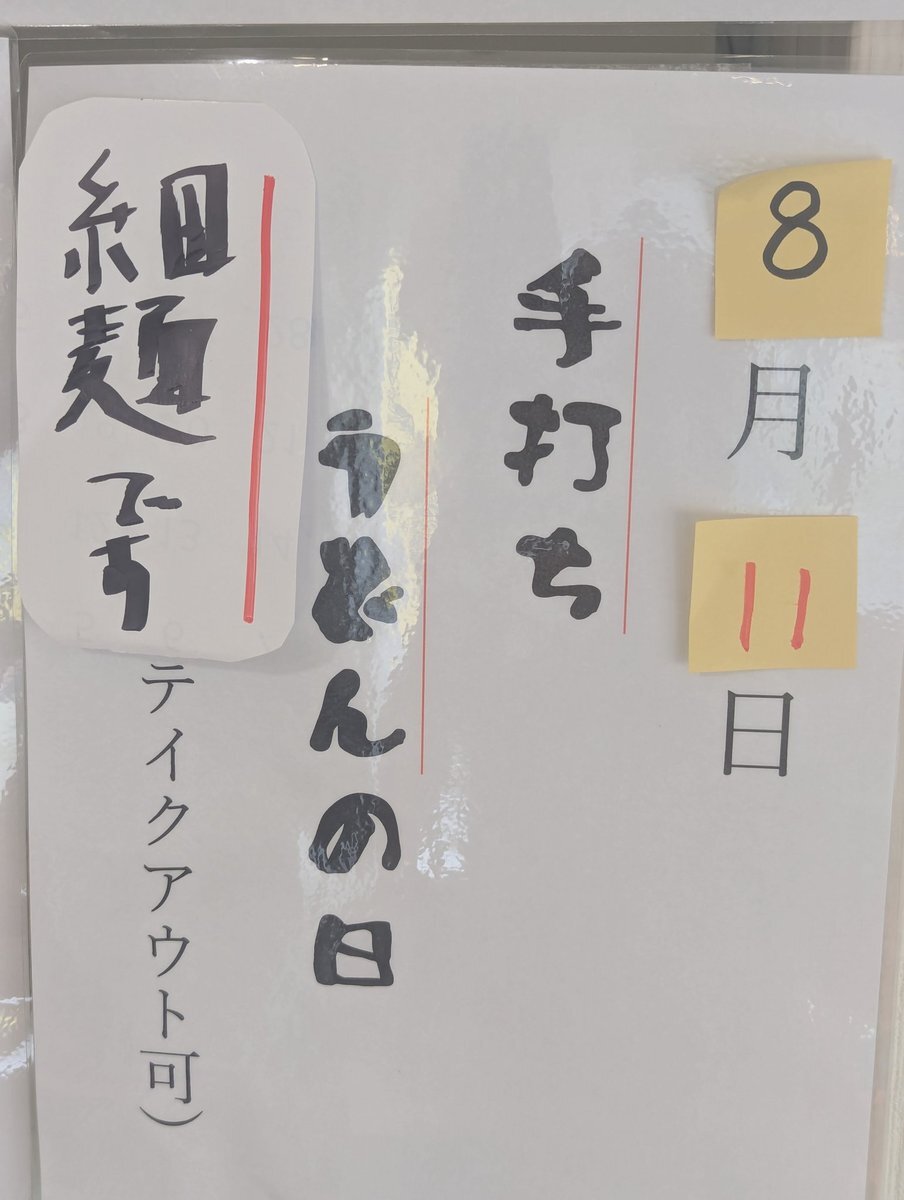 8月11日
手打ち
うどんの日
細麺です
テイクアウト可)